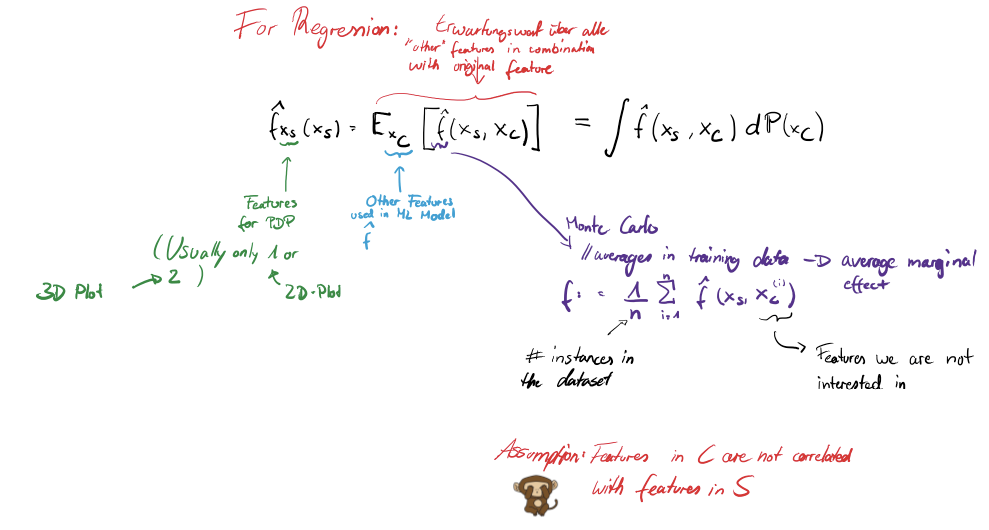 For Regression:
Erwartungswert über alle
"other" features in combination
with original feature
f̂xₛ(xₛ) = E_x_C [f̂(xₛ, x_C)] = ∫ f̂(xₛ, x_C) dP(x_C)
Features
for PDP
(Usually only 1 or
2)
3D Plot
2D-Plot
Other Features
used in ML Model
f̂
Monte Carlo
// averages in training data → average marginal
effect
f: = 1/n Σ_{i=1}^{n} f̂(xₛ, x_C^(i))
# instances in
the dataset
Features we are not
interested in
Assumption: Features in C are not correlated
with features in S